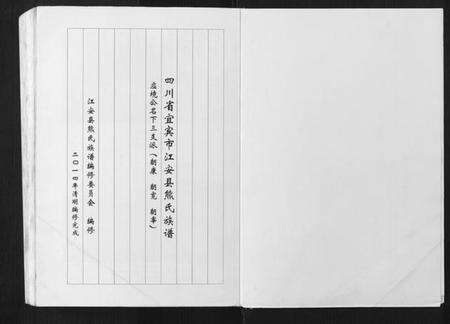 四川省宜宾市江安县熊氏族谱
应境公名下三支派（朝康 朝亮 朝事）
江安县熊氏族谱编修委员会 编修
二〇一四年清明编修完成